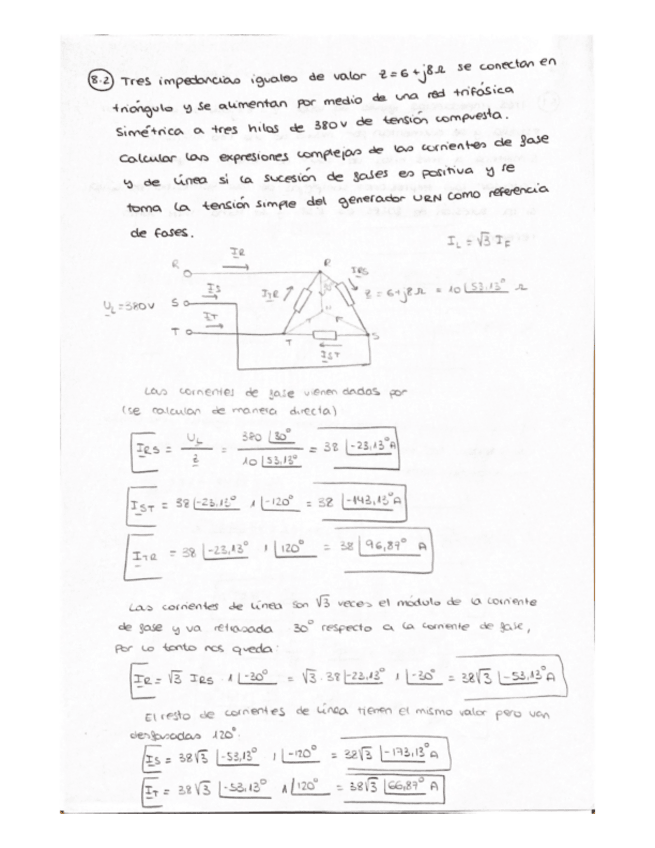 8.2 Tres impedancias iguales de valor Z=6+j8Ω se conectan en
triángulo y se alimentan por medio de una red trifásica
simétrica a tres hilos de 380V de tensión compuesta.
Calcular las expresiones complejas de las corrientes de fase
y de línea si la sucesión de fases es positiva y se
toma la tensión simple del generador URN como referencia
de fases.
I_L = √3 · I_F
R I_R R I_RS
U_L = 380V S I_S I_TR Z = 6+j8Ω = 10 ∠53.13° Ω
T I_T T S
I_ST
Las corrientes de fase vienen dadas por
(se calculan de manera directa)
I_RS = U_L / Z = 380 ∠30° / 10 ∠53,13° = 38 ∠-23,13° A
I_ST = 38 ∠-23,13° · 1 ∠-120° = 38 ∠-143,13° A
I_TR = 38 ∠-23,13° · 1 ∠120° = 38 ∠96,87° A
Las corrientes de línea son √3 veces el módulo de la corriente
de fase y va retrasada 30° respecto a la corriente de fase,
por lo tanto nos queda:
I_R = √3 I_RS · 1 ∠-30° = √3 · 38 ∠-23,13° · 1 ∠-30° = 38√3 ∠-53,13° A
El resto de corrientes de línea tienen el mismo valor pero van
desfasadas 120°.
I_S = 38√3 ∠-53,13° · 1 ∠-120° = 38√3 ∠-173,13° A
I_T = 38√3 ∠-53,13° · 1 ∠120° = 38√3 ∠66,87° A